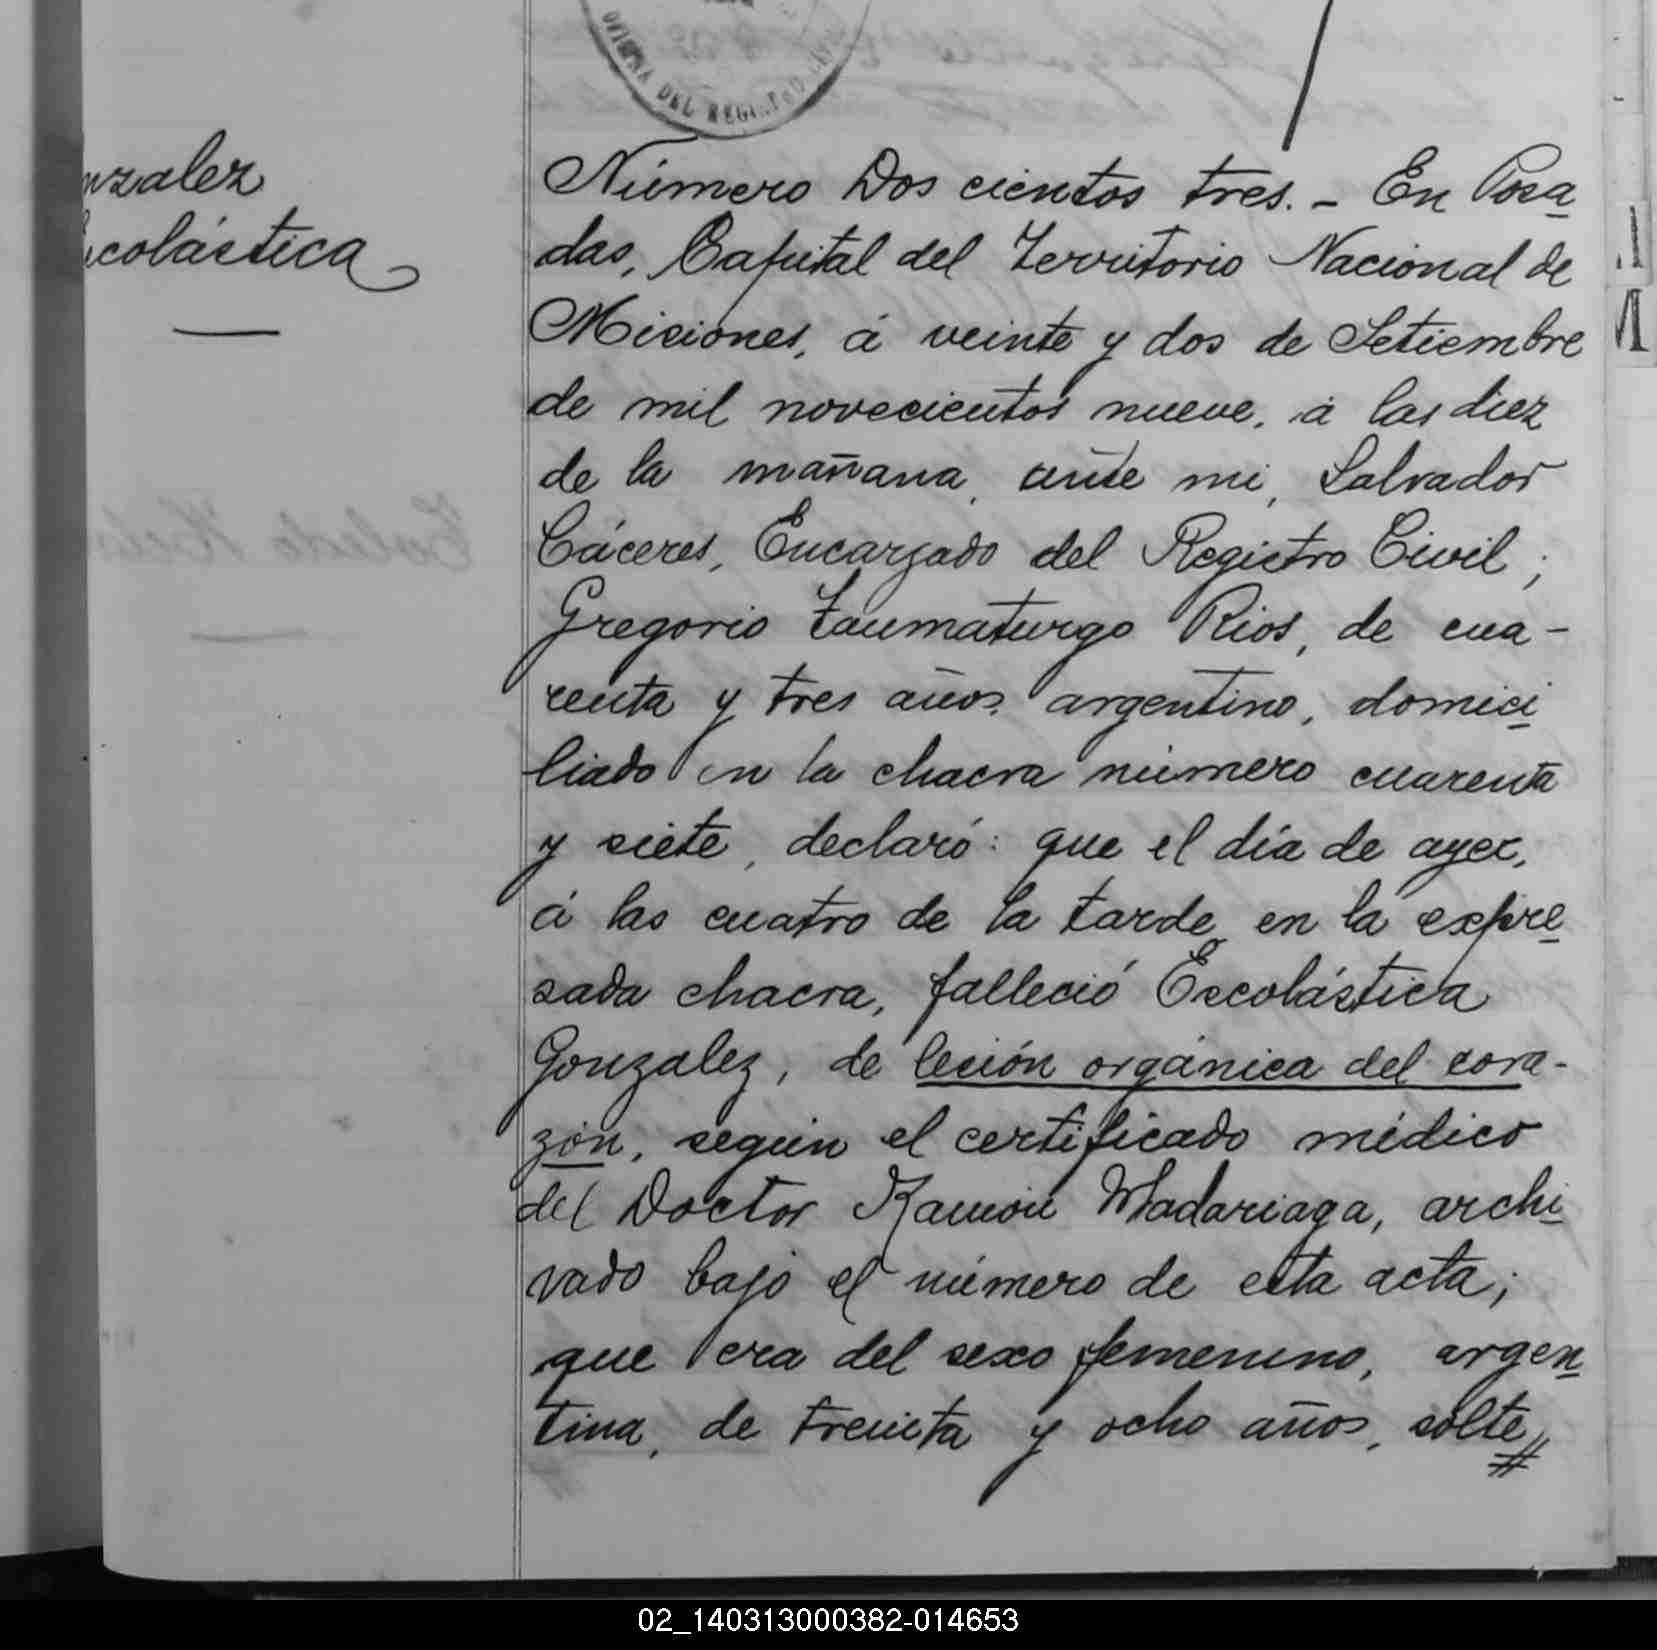 OFICINA DEL REGISTRO CIVIL
nzalez
scolástica
Número Dos cientos tres. - En Posa
das, Capital del Territorio Nacional de
Misiones, á veinte y dos de Setiembre
de mil novecientos nueve, á las diez
de la mañana, ante mi, Salvador
Cáceres, Encargado del Registro Civil;
Gregorio Taumaturgo Rios, de cua-
renta y tres años, argentino, domici
liado en la chacra número cuarenta
y siete, declaró: que el día de ayer,
á las cuatro de la tarde, en la expre
sada chacra, falleció Escolástica
Gonzalez, de lesión orgánica del cora-
zón, según el certificado médico
del Doctor Ramón Madariaga, archi
vado bajo el número de esta acta;
que era del sexo femenino, argen
tina, de treinta y ocho años, solte
02_140313000382-014653